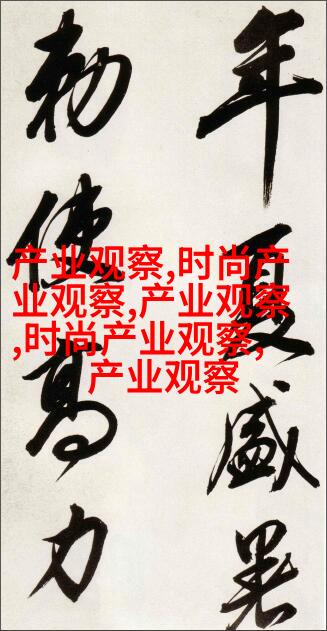 年夏盛暑
勅使高力
产业观察,时尚产
业观察,产业观察
,时尚产业观察,
产业观察